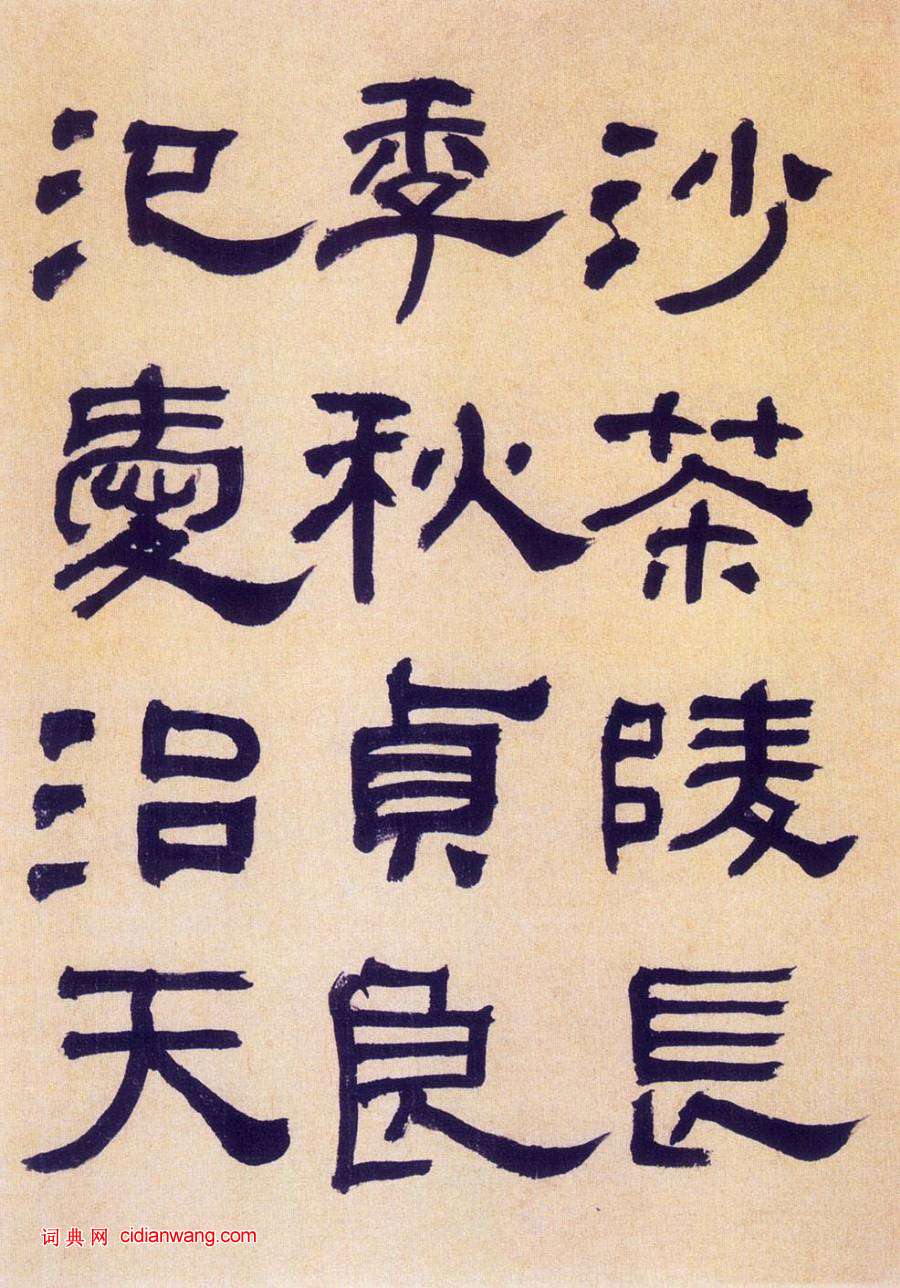 沙茶陵長
季秋貞良
汜愛治天
词典网 cidianwang.com